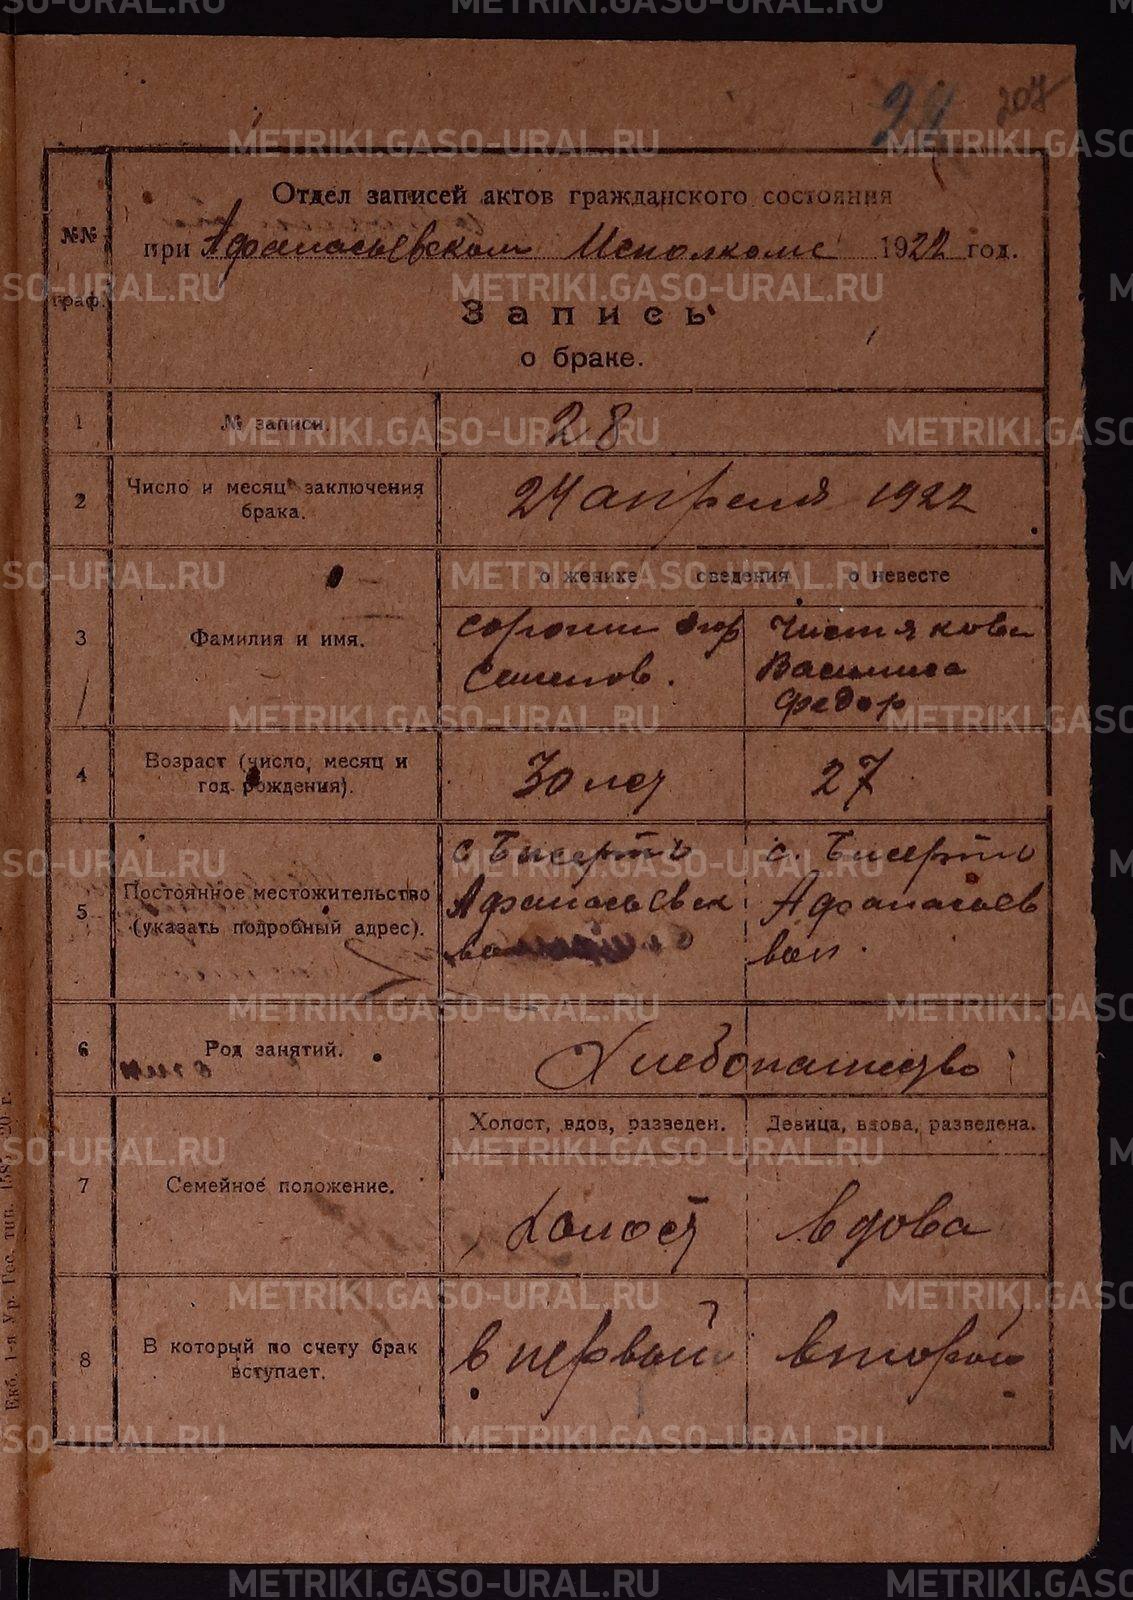 207
№№
граф.
Отдел записей актов гражданского состояния
при Афанасьевском Исполкоме 1922 год.
Запись
о браке.
1 № записи. 28
2 Число и месяц заключения брака. 24 апреля 1922
о женихе сведения о невесте
3 Фамилия и имя.
Сорокин Егор
Семенов.
Чистякова
Василиса
Федор
4 Возраст (число, месяц и
год рождения).
30 лет 27
5 Постоянное местожительство
(указать подробный адрес).
с Бисерть
Афанасьевск
во
с. Бисерть
Афанасьев
вол.
6 Род занятий. Хлебопашество
Холост, вдов, разведен. Девица, вдова, разведена.
7 Семейное положение. Холост Вдова
8 В который по счету брак
вступает.
в первый второй
Екб. 1-я Ур. Гос. тип.
METRIKI.GASO-URAL.RU